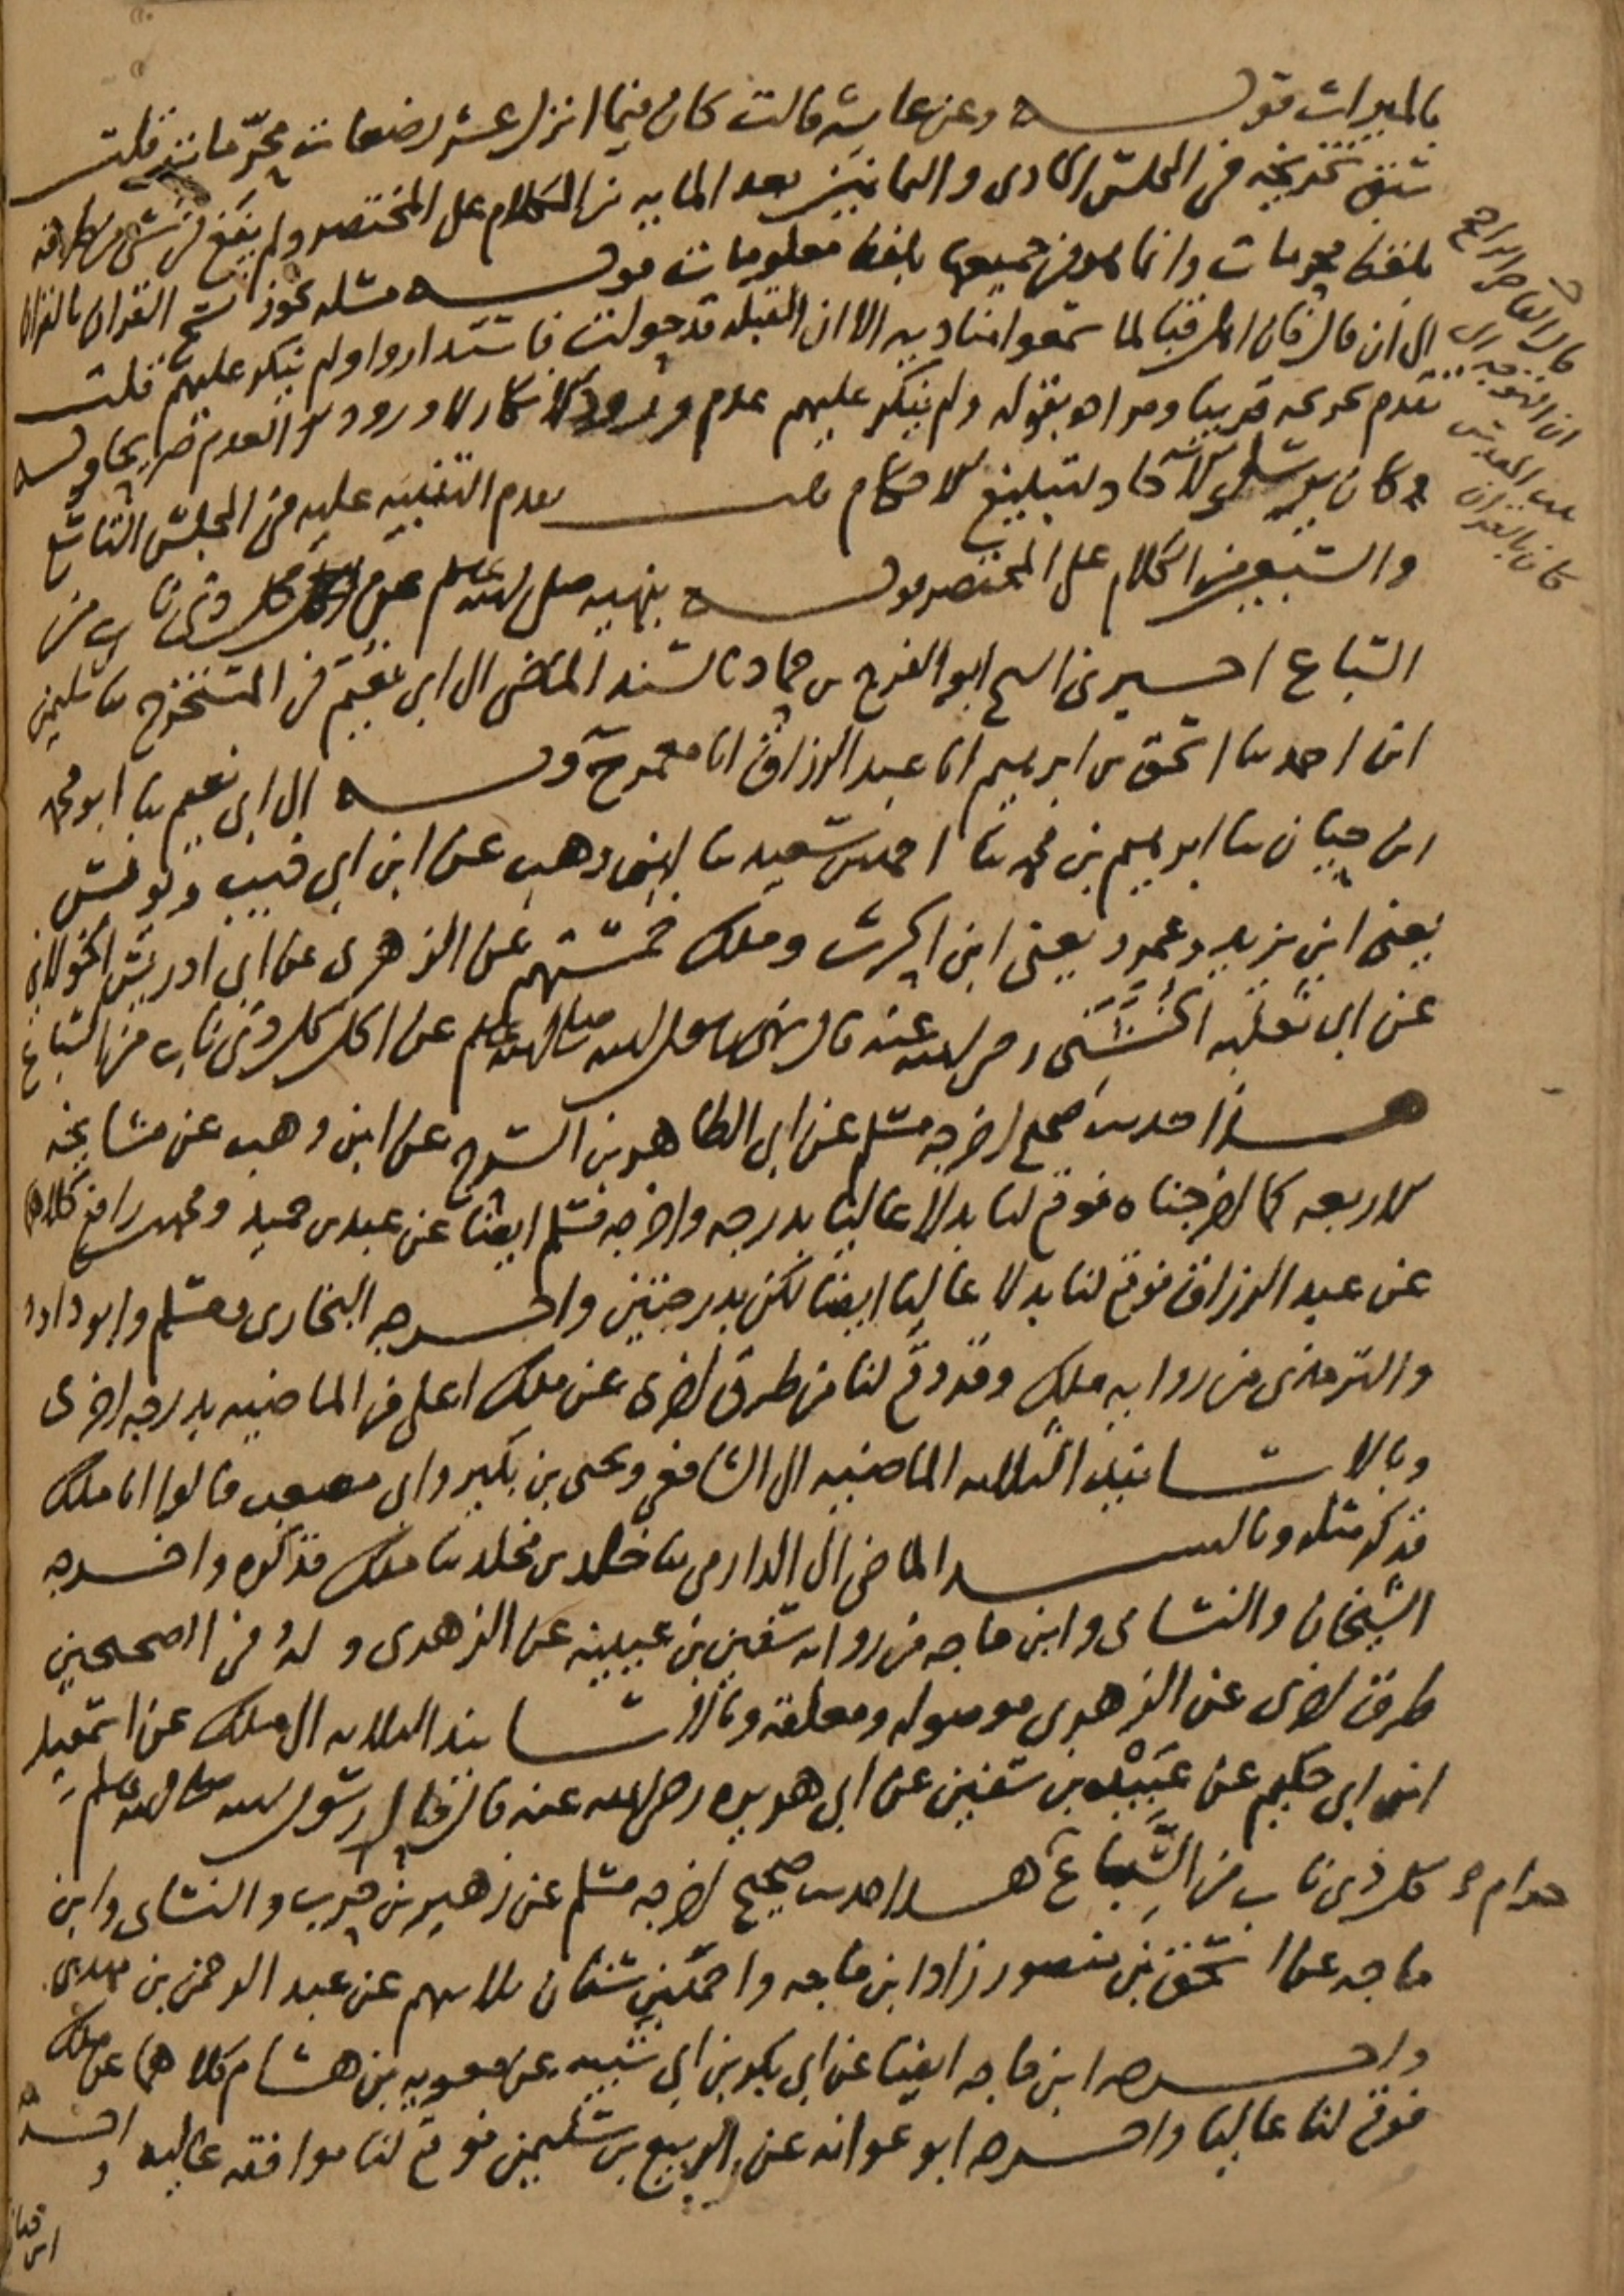 بالميراث قوله وعن عايشه قالت كان فيما انزل عشر رضعات محرّمات قلت
سبق تخريجه في المجلس الحادي والثمانين بعد المايه من الكلام على المختصر ولم يقع في شي من طرقه
بلفظ محرمات وانما هو في جميعها بلفظ معلومات قوله مسله يجوز نسخ القران بالقران
الى ان قال فان اهل قبا لما سمعوا مناديه الا ان القبله قد حولت فاستداروا ولم ينكر عليهم قلت
تقدم تخريجه قريبا ومراده بقوله ولم ينكر عليهم عدم ورود الانكار لا ورود العدم صريحا قوله
وكان يرسل الاحاد لتبليغ الاحكام قلت تقدم التنبيه عليه في المجلس التاسع
والسبعين من الكلام على المختصر قوله بنهيه صلى الله عليه وسلم عن اكل كل ذي ناب من
السباع اخبرني الشيخ ابو الفرج بن حماد بالسند الماضي الى ابي نعيم في المستخرج ثنا سليمن
ابن احمد ثنا اسحق بن ابرهيم انا عبد الرزاق انا معمر ح وبه الى ابي نعيم ثنا ابو محمد
ابن حيان ثنا ابرهيم بن محمد ثنا احمد بن سعيد ثنا ابن وهب عن ابن ابي ذيب ويونس
يعني ابن يزيد وعمرو يعني ابن الحرث وملك خمستهم عن الزهري عن ابي ادريس الخولاني
عن ابي ثعلبه الخُشَني رضي الله عنه قال نهى رسول الله صلى الله عليه وسلم عن اكل كل ذي ناب من السباع
هذا حديث صحيح اخرجه مسلم عن ابي الطاهر بن السرح عن ابن وهب عن مشايخه
الاربعه كما اخرجناه فوقع لنا بدلا عاليا بدرجه واخرجه مسلم ايضا عن عبد بن حميد ومحمد بن رافع كلاهما
عن عبد الرزاق فوقع لنا بدلا عاليا ايضا لكن بدرجتين واخرجه البخاري ومسلم وابو داود
والترمذي من روايه ملك وقد وقع لنا من طرق اخرى عن ملك اعلى من الماضيه بدرجه اخرى
وبالاسانيد الثلاثه الماضيه الى الشافعي ويحيى بن بكير وابي مصعب قالوا انا ملك
فذكر مثله وبالسند الماضي الى الدارمي ثنا خلد بن مخلد ثنا ملك فذكره واخرجه
الشيخان والنساي وابن ماجه من روايه سفين بن عيينه عن الزهري وله في الصحيحين
طرق اخرى عن الزهري موصوله ومعلقه وبالاسانيد الثلاثه الى ملك عن اسمعيل
ابن ابي حكيم عن عَبِيْدَه بن سفين عن ابي هريره رضي الله عنه قال قال رسول الله صلى الله عليه وسلم
كل ذي ناب من السِّبَاع حرام هذا حديث صحيح اخرجه مسلم عن زهير بن حرب والنساي وابن
ماجه عن اسحق بن منصور زاد ابن ماجه واحمد بن سنان ثلاثتهم عن عبد الرحمن بن مهدي
واخرجه ابن ماجه ايضا عن ابي بكر بن ابي شيبه عن معويه بن هشام كلاهما عن ملك
فوقع لنا عاليا واخرجه ابو عوانه عن الربيع بن سليمن فوقع لنا موافقه عاليه واخرجه
ابن حبان